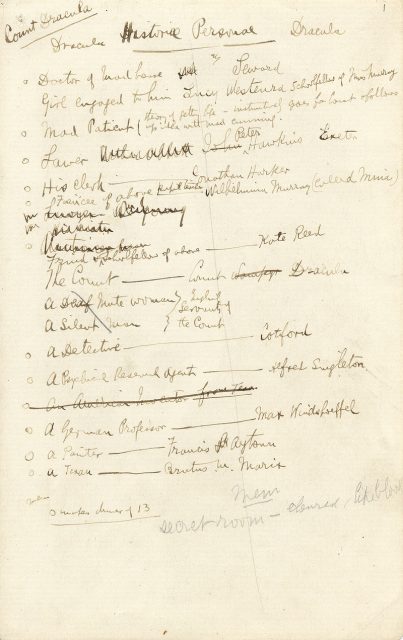 Count Dracula
1
Dracula Historiæ Personae Dracula
o Doctor of Mad house Seward
Girl engaged to him Lucy Westenra schoolfellow of Miss Murray
o Mad Patient (theory of getting life - instinctively goes for Count & follows
up idea with mad cunning.
o Lawyer John Peter Hawkins Exeter
o His clerk Jonathan Harker
o Fiancee of above pupil teacher Wilhelmina Murray (called Mina)
o
Friend & schoolfellow of above Kate Reed
The Count Count Dracula
A Deaf Mute woman } English
A Silent Man } Servants of
the Count
o A Detective Cotford
o A Psychical Research Agent Alfred Singleton
o An American Inventor from Texas
o A German Professor Max Windshoeffel
o A Painter Francis Aytown
o A Texan Brutus M. Marix
mem
o makes dinner of 13
Mem
secret room - coloured like blood